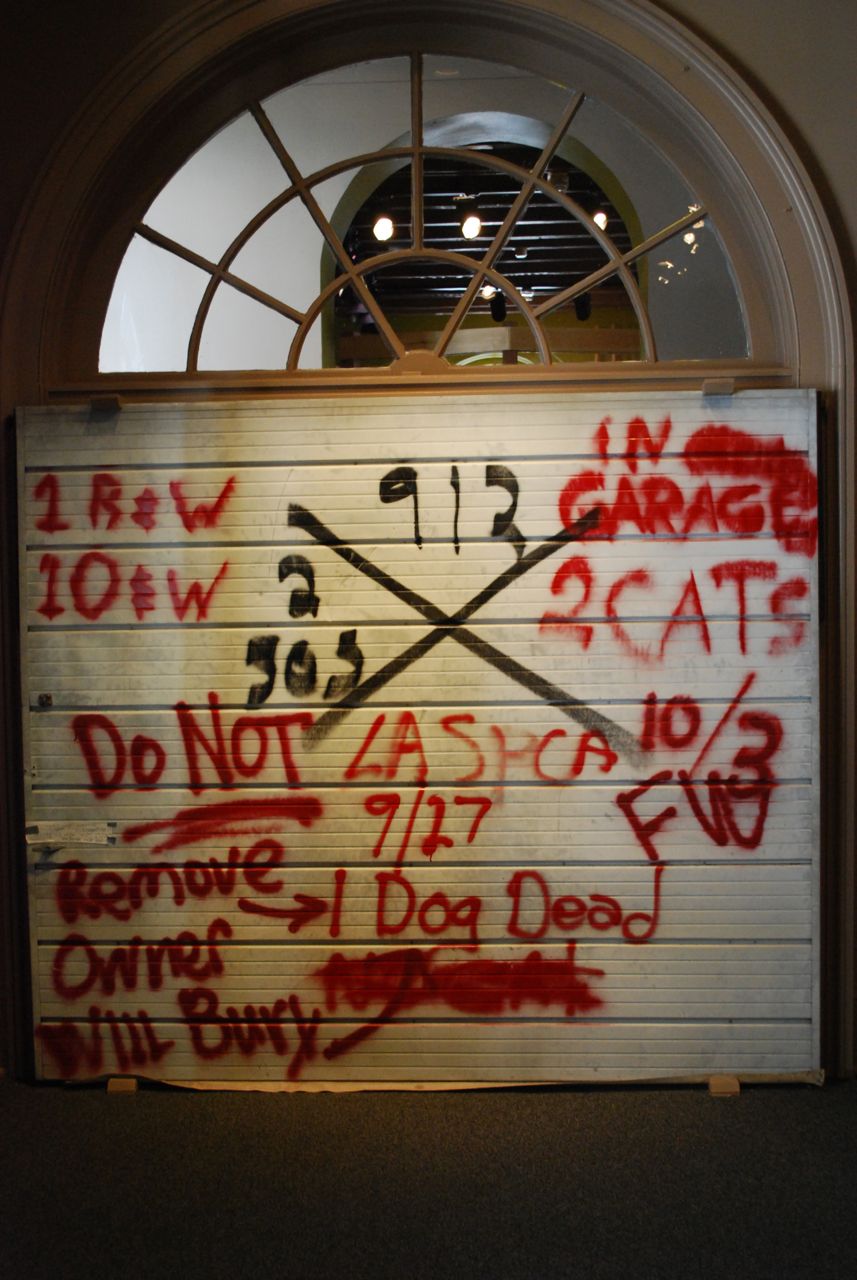 IN
GARAGE
1 B&W
10&W
2 CATS
913
2
303
DO NOT
LASPCA
9/27
10/3
FWD
Remove
Owner
Will Bury
→ 1 Dog Dead